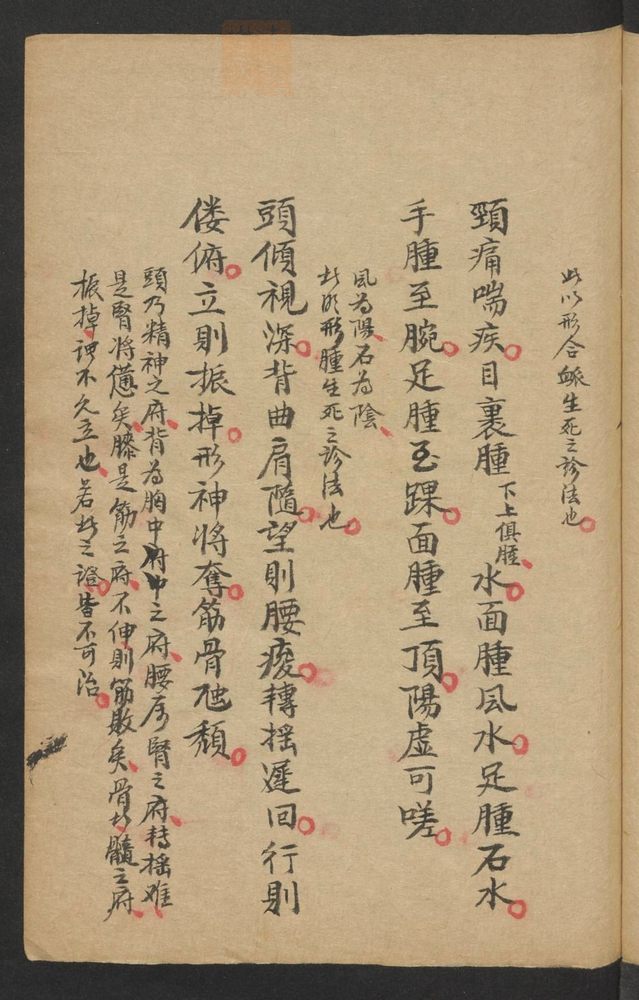 此以形合脈生死之診法也
頸痛喘疾目裏腫下上俱腫水面腫风水足腫石水
手腫至腕足腫至踝面腫至頂陽虚可嗟
風為陽石為陰
此以形腫生死之診法也
頭傾視深背曲肩隨望則腰痠轉搖遲回行則
偻俯立則振掉形神將奪筋骨虺頹
頭乃精神之府背為胸中府中之府腰为腎之府转搖难
是腎將憊矣膝是筋之府不伸則筋敗矣骨为髓之府
振掉謂不久立也若此之證皆不可治